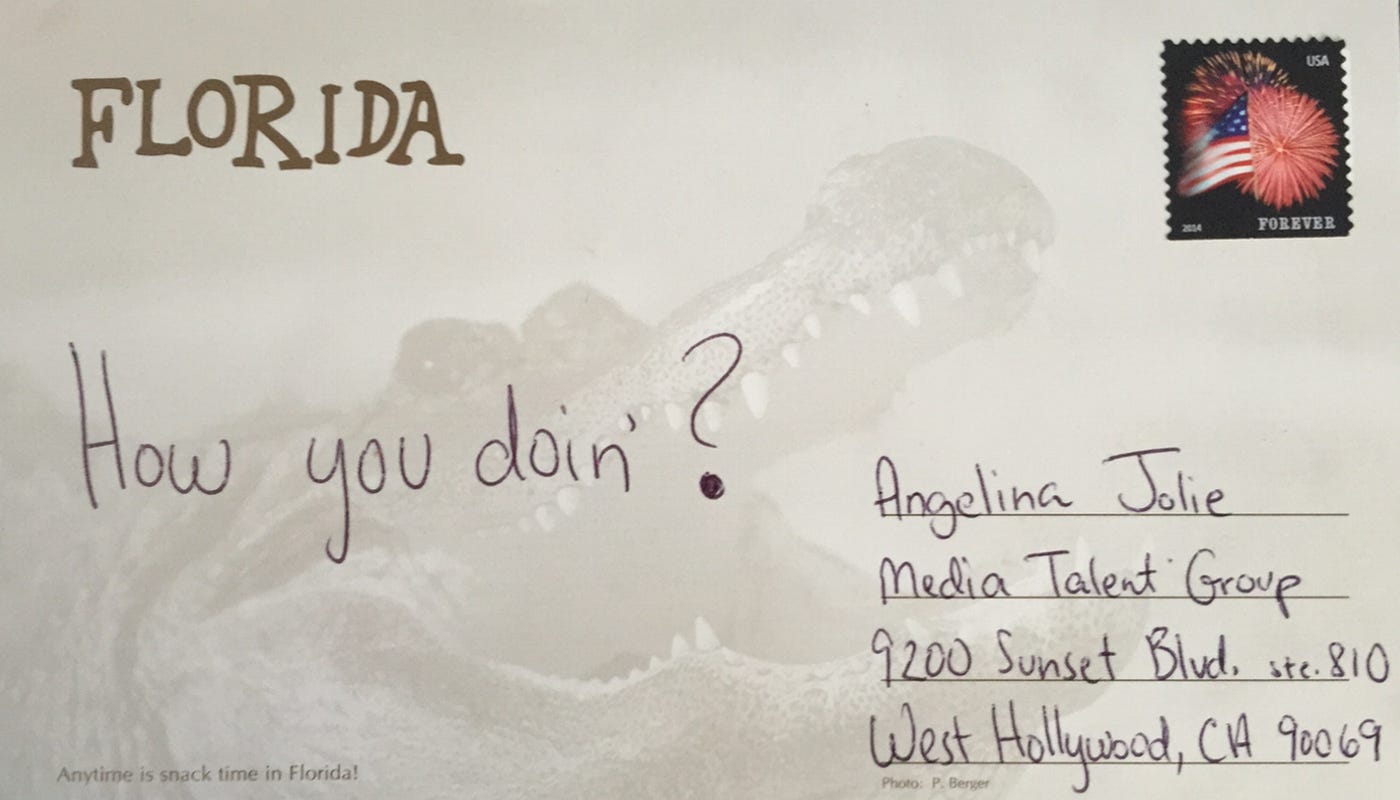 FLORIDA
USA
2014 FOREVER
How you doin'?
Angelina Jolie
Media Talent Group
9200 Sunset Blvd. ste. 810
West Hollywood, CA 90069
Anytime is snack time in Florida!
Photo: P. Berger